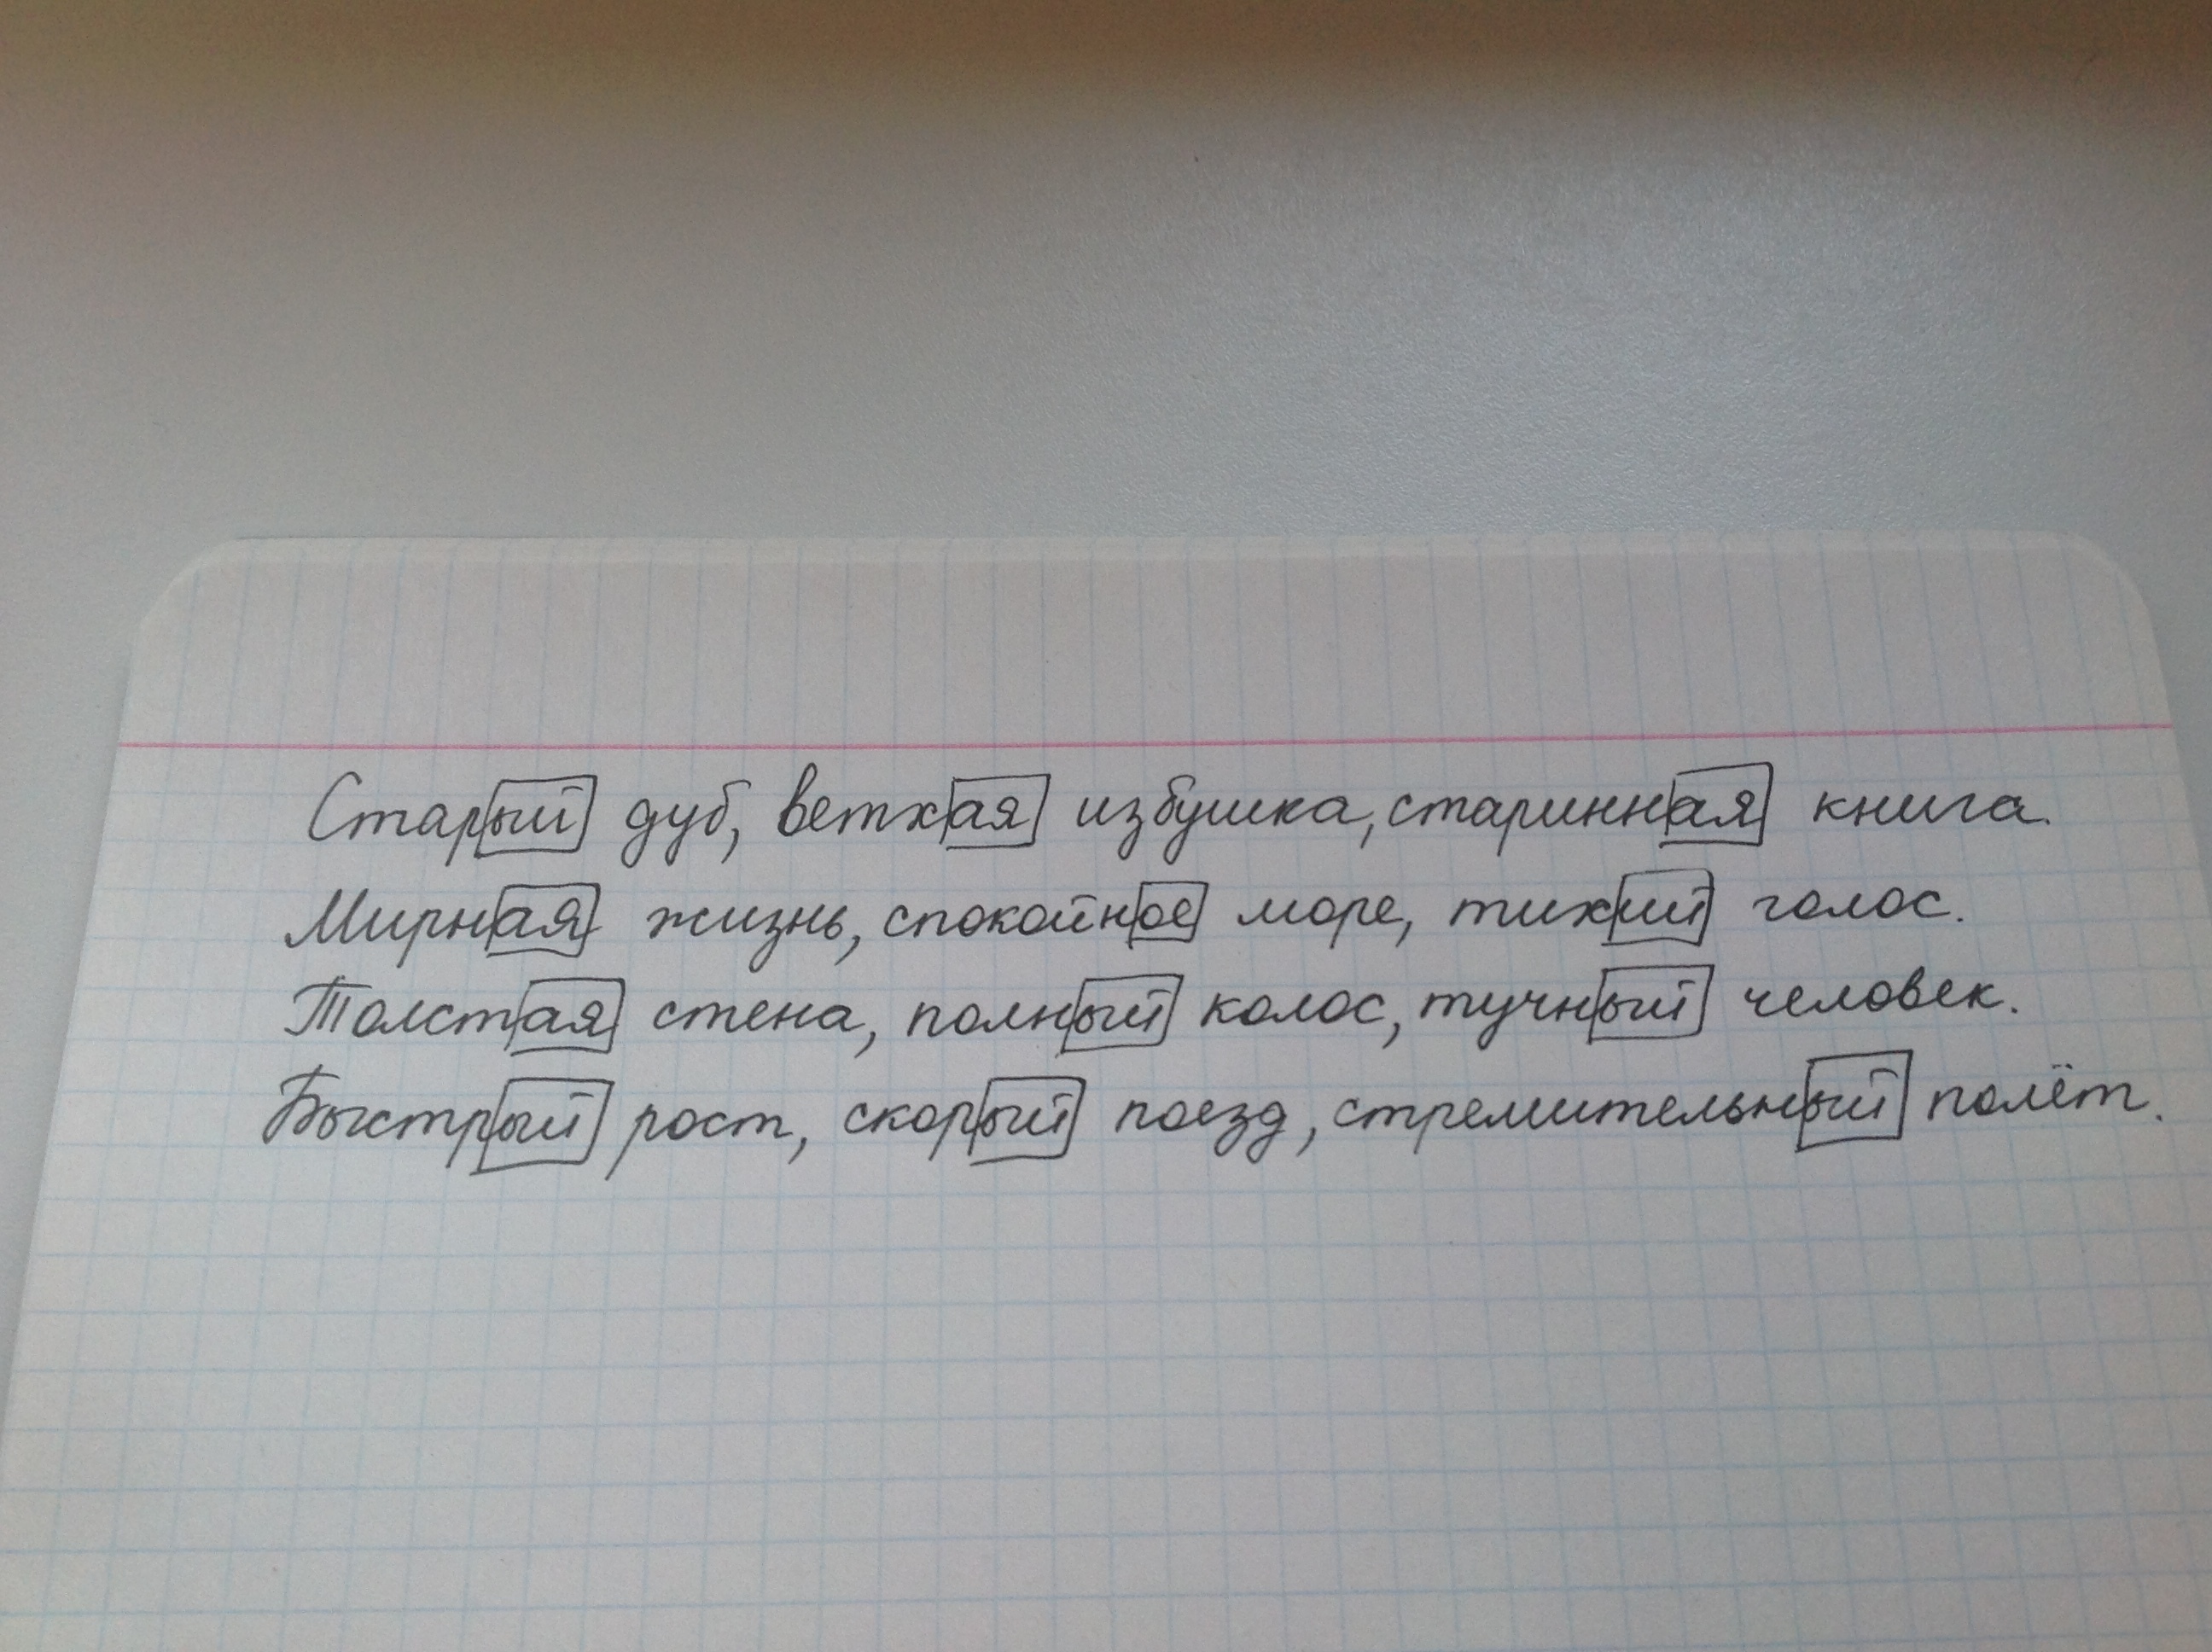 Старый дуб, ветхая избушка, старинная книга.
Мирная жизнь, спокойное море, тихий голос.
Толстая стена, полный колос, тучный человек.
Быстрый рост, скорый поезд, стремительный полёт.